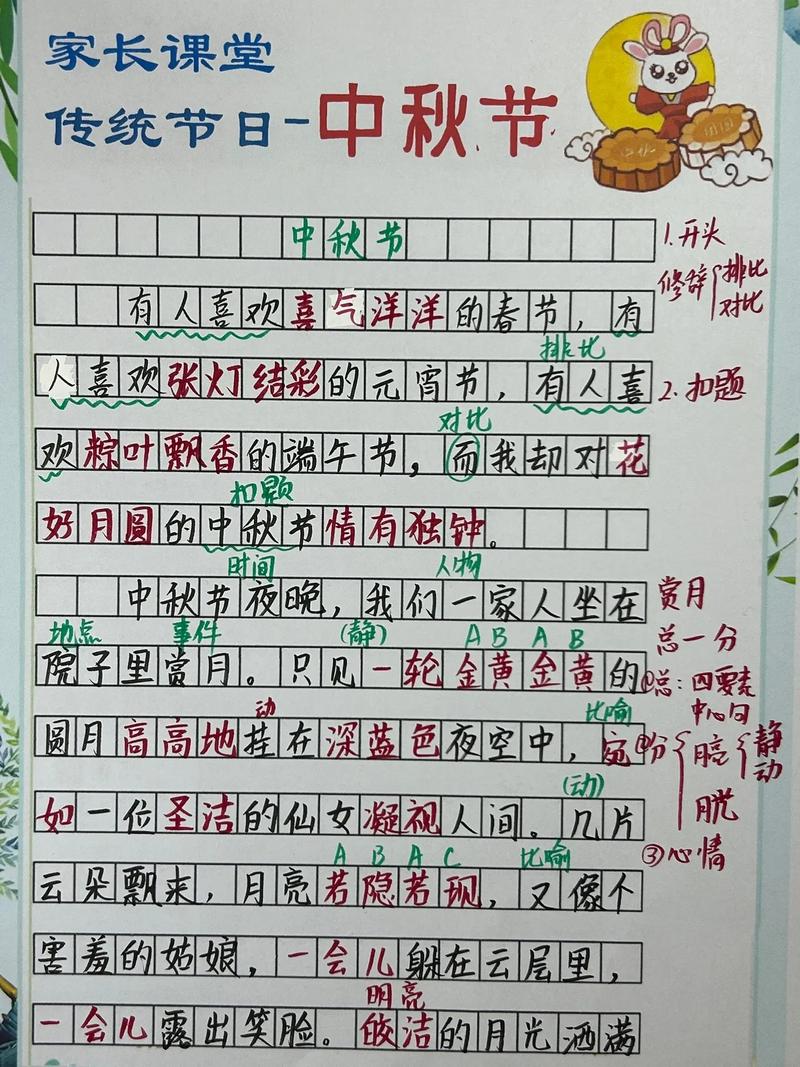 家长课堂
传统节日-中秋节
中秋节
1.开头
修辞{排比
对比
有人喜欢喜气洋洋的春节，有
排比
人喜欢张灯结彩的元宵节，有人喜
2.扣题
对比
欢粽叶飘香的端午节，而我却对花
扣题
好月圆的中秋节情有独钟。
时间 人物
中秋节夜晚，我们一家人坐在
赏月
地点 事件 (静) A B A B
总一分
院子里赏月。只见一轮金黄金黄的
①总：四要素
中心句
动 比喻
圆月高高地挂在深蓝色夜空中，宛
②分{ {静
动
(动)
如一位圣洁的仙女凝视人间。几片
A B A C 比喻
③心情
云朵飘来，月亮若隐若现，又像个
害羞的姑娘，一会儿躲在云层里，
明亮
一会儿露出笑脸。皎洁的月光洒满